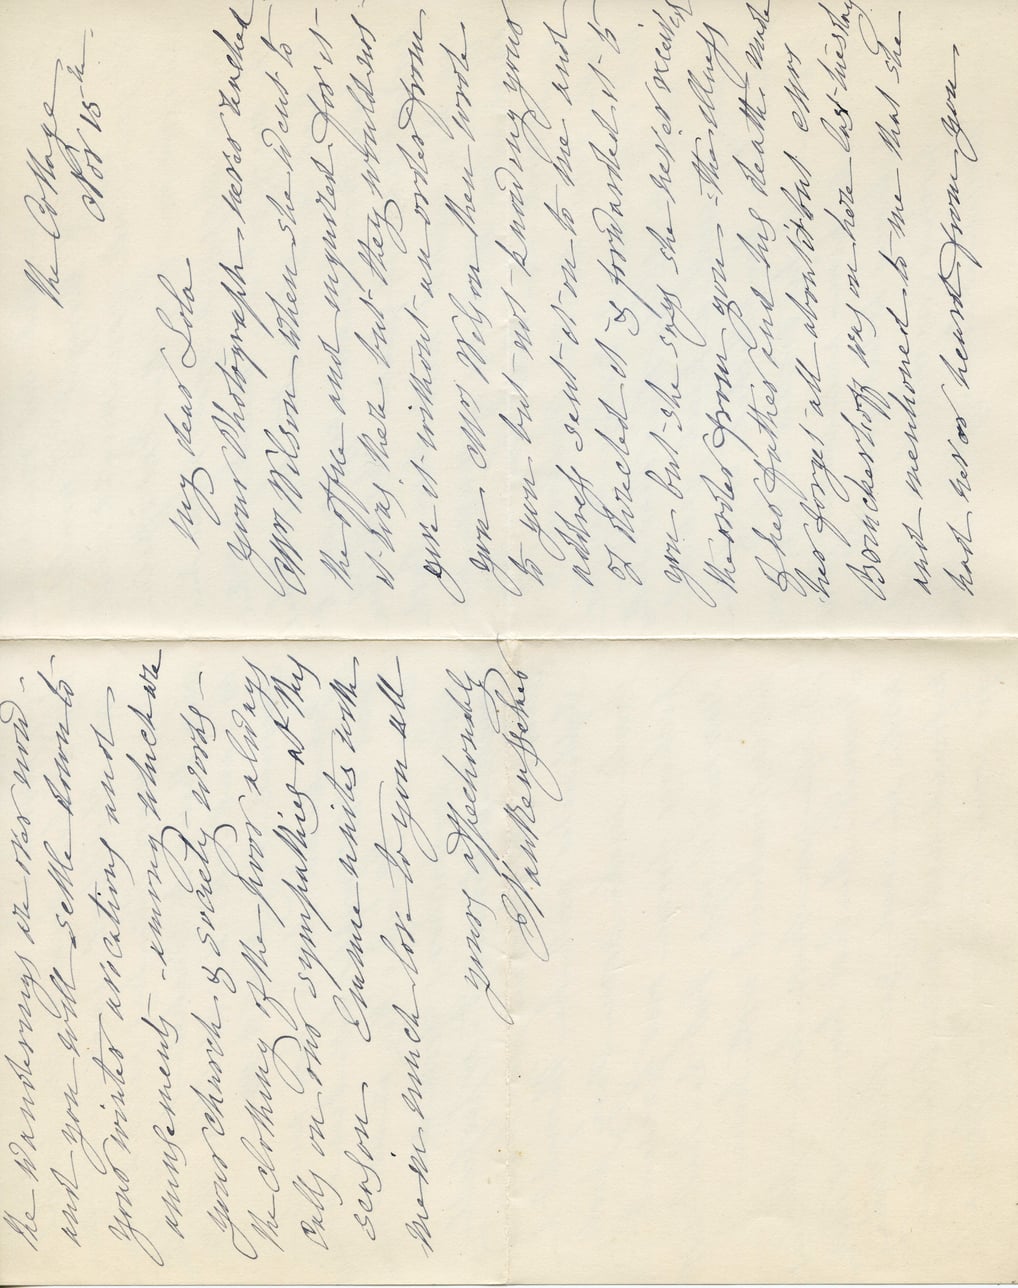 The Cottage
Nov 15th
My dear Lola
Your Photograph never reached
Mrs Wilson when she went to
the office and inquired for it
it was there but they would not
give it without an order from
you Mrs Wilson then wrote
to you but not knowing your
address sent it on to me and
I directed it & forwarded it to
you but she says she never received
the order from you - the illness
of her father and his death made
her forget all about it but Mrs
was on here last Tuesday
and mentioned to me that she
had never heard from you
the wanderings are over now
and you will settle down to
your winter avocations and
amusements - among which are
your church & society works -
the clothing of the poor always
calls on our sympathies at this
season unites with
me in much love to you all
yours affectionately